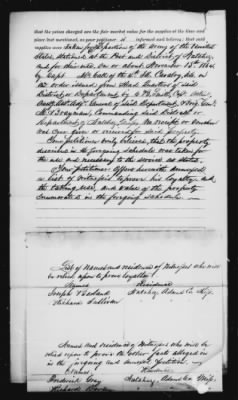 that the prices charged are the fair market value for the supplies at the time and
place last mentioned, as your petitioner is informed and believes; that said
supplies were taken for of the Army of the United
States, stationed at the Post and District of Natchez,
and for their use, on or about November 15th 1864
by Capt. McCully of the Cavalry, in
an order issued from Head Quarters of said
District or Department, by
Asst Adjt Genl of said Department, Brig. Gen.
M. Brayman, Commanding said District or
Department of Natchez No receipt or voucher
was ever given or received for said property
Your petitioner verily believes that the property
described in the foregoing schedule was taken for
the use and necessary to the service as stated.
Your petitioner offers herewith annexed
a list of witnesses to prove his loyalty and
the taking, use, and value of the property
enumerated in the foregoing schedule.
List of names and residence of Witnesses who will
be relied upon to prove loyalty.
Names Residence
Joseph Natchez Adams Co Miss.
Richard Sullivan
Names and residence of Witnesses who will be
relied upon to prove the other facts alleged in
the foregoing and annexed Petition.
Names Residence
Frederick Gray Natchez Adams Co Miss.
Richard